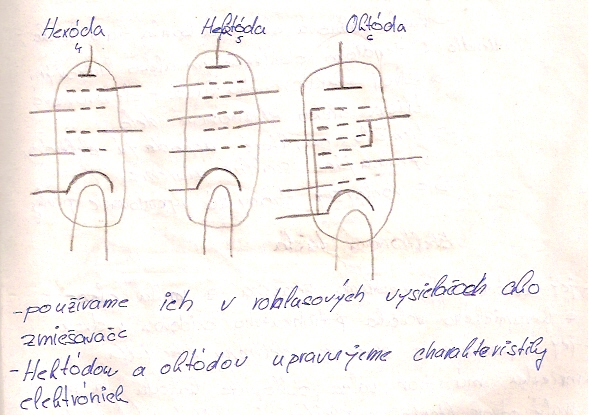 Hexóda Hektóda Októda
4 5 6
-používame ich v rozhlasových vysielačoch ako
zmiešavače
-Hektódou a októdou upravujeme charakteristiky
elektróniek